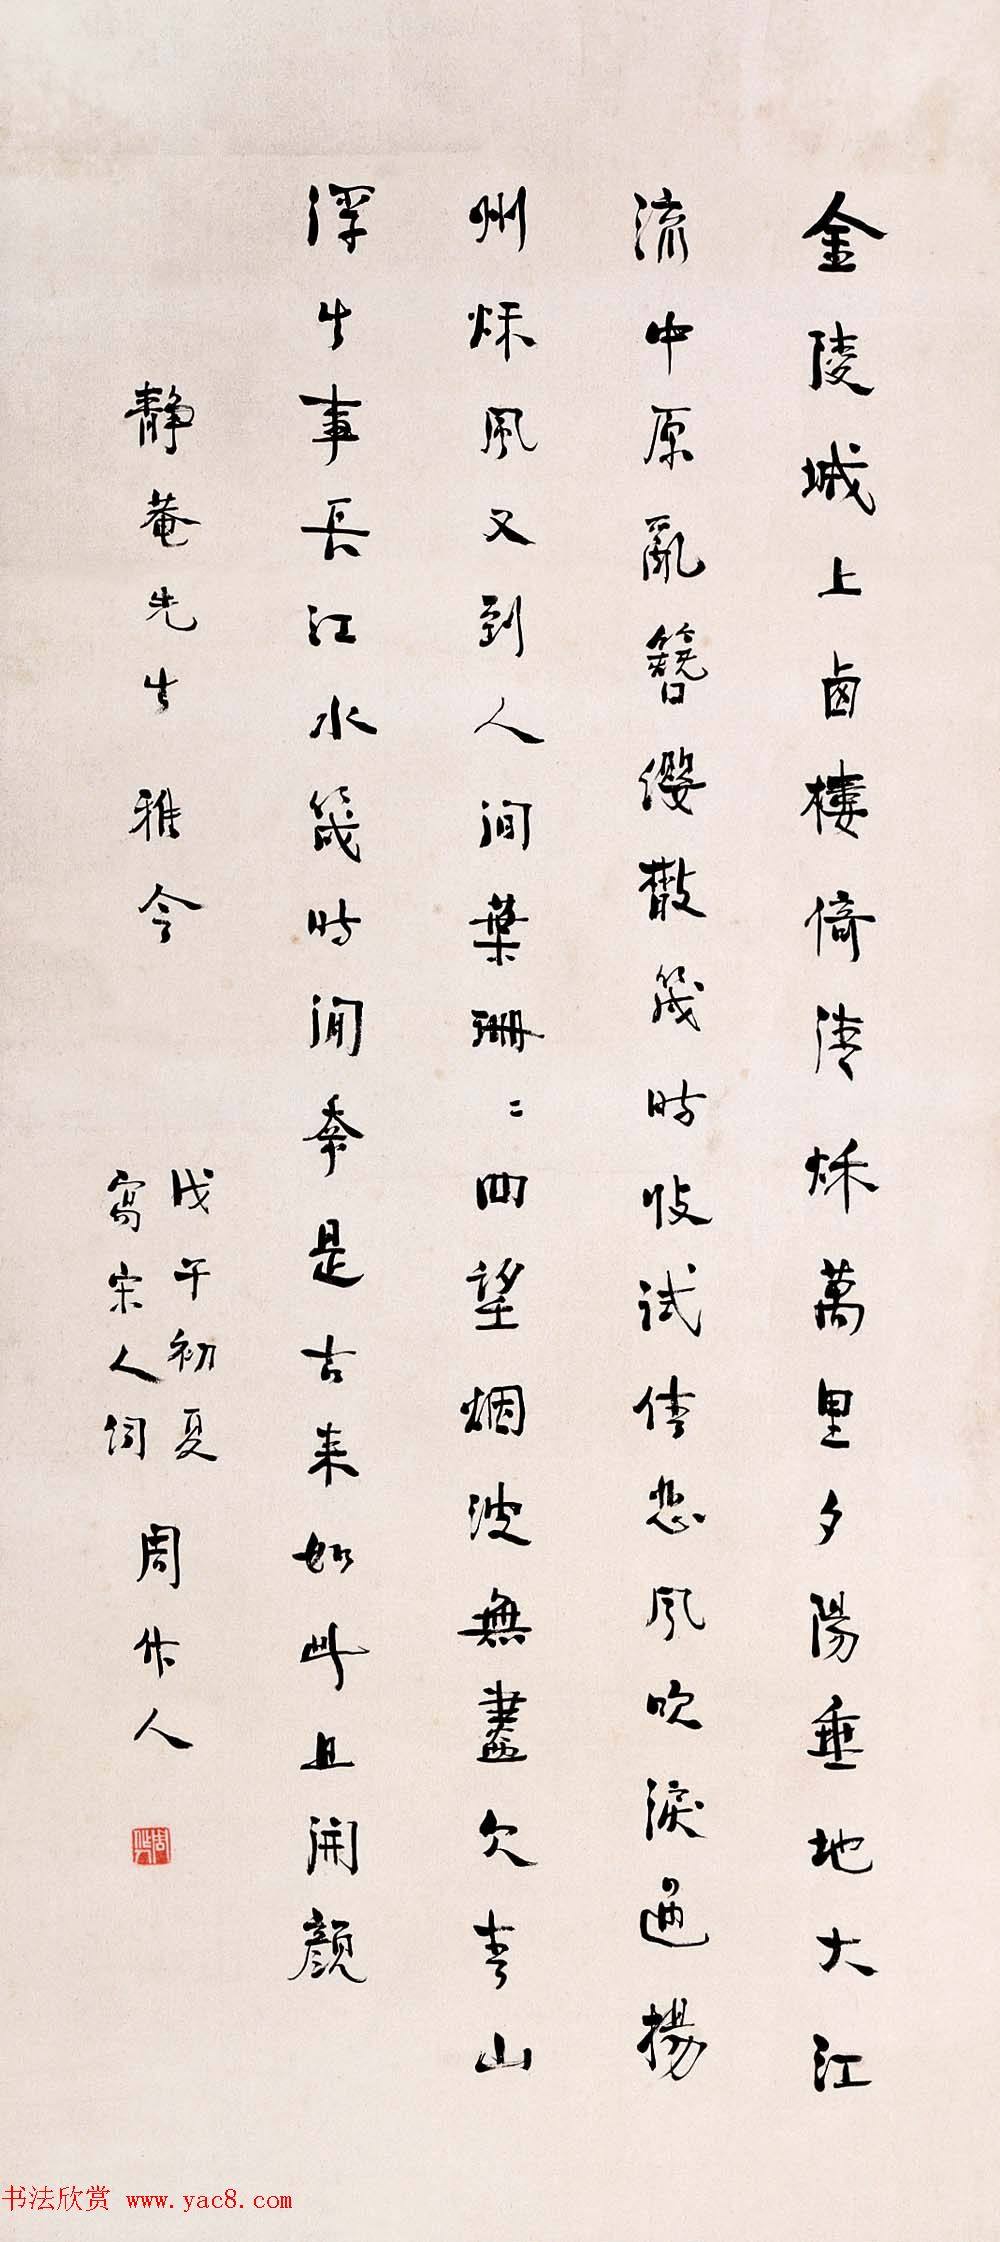 金陵城上西樓倚清秌萬里夕陽垂地大江
流中原亂簪纓散幾時收試倩悲風吹淚過揚
州秌風又到人間葉珊〻四望烟波無盡欠青山
浮生事長江水幾時閒幸是古来如此且開顔
靜菴先生 雅令
戊午初夏
寫宋人词
周作人
周作人
书法欣赏 www.yac8.com